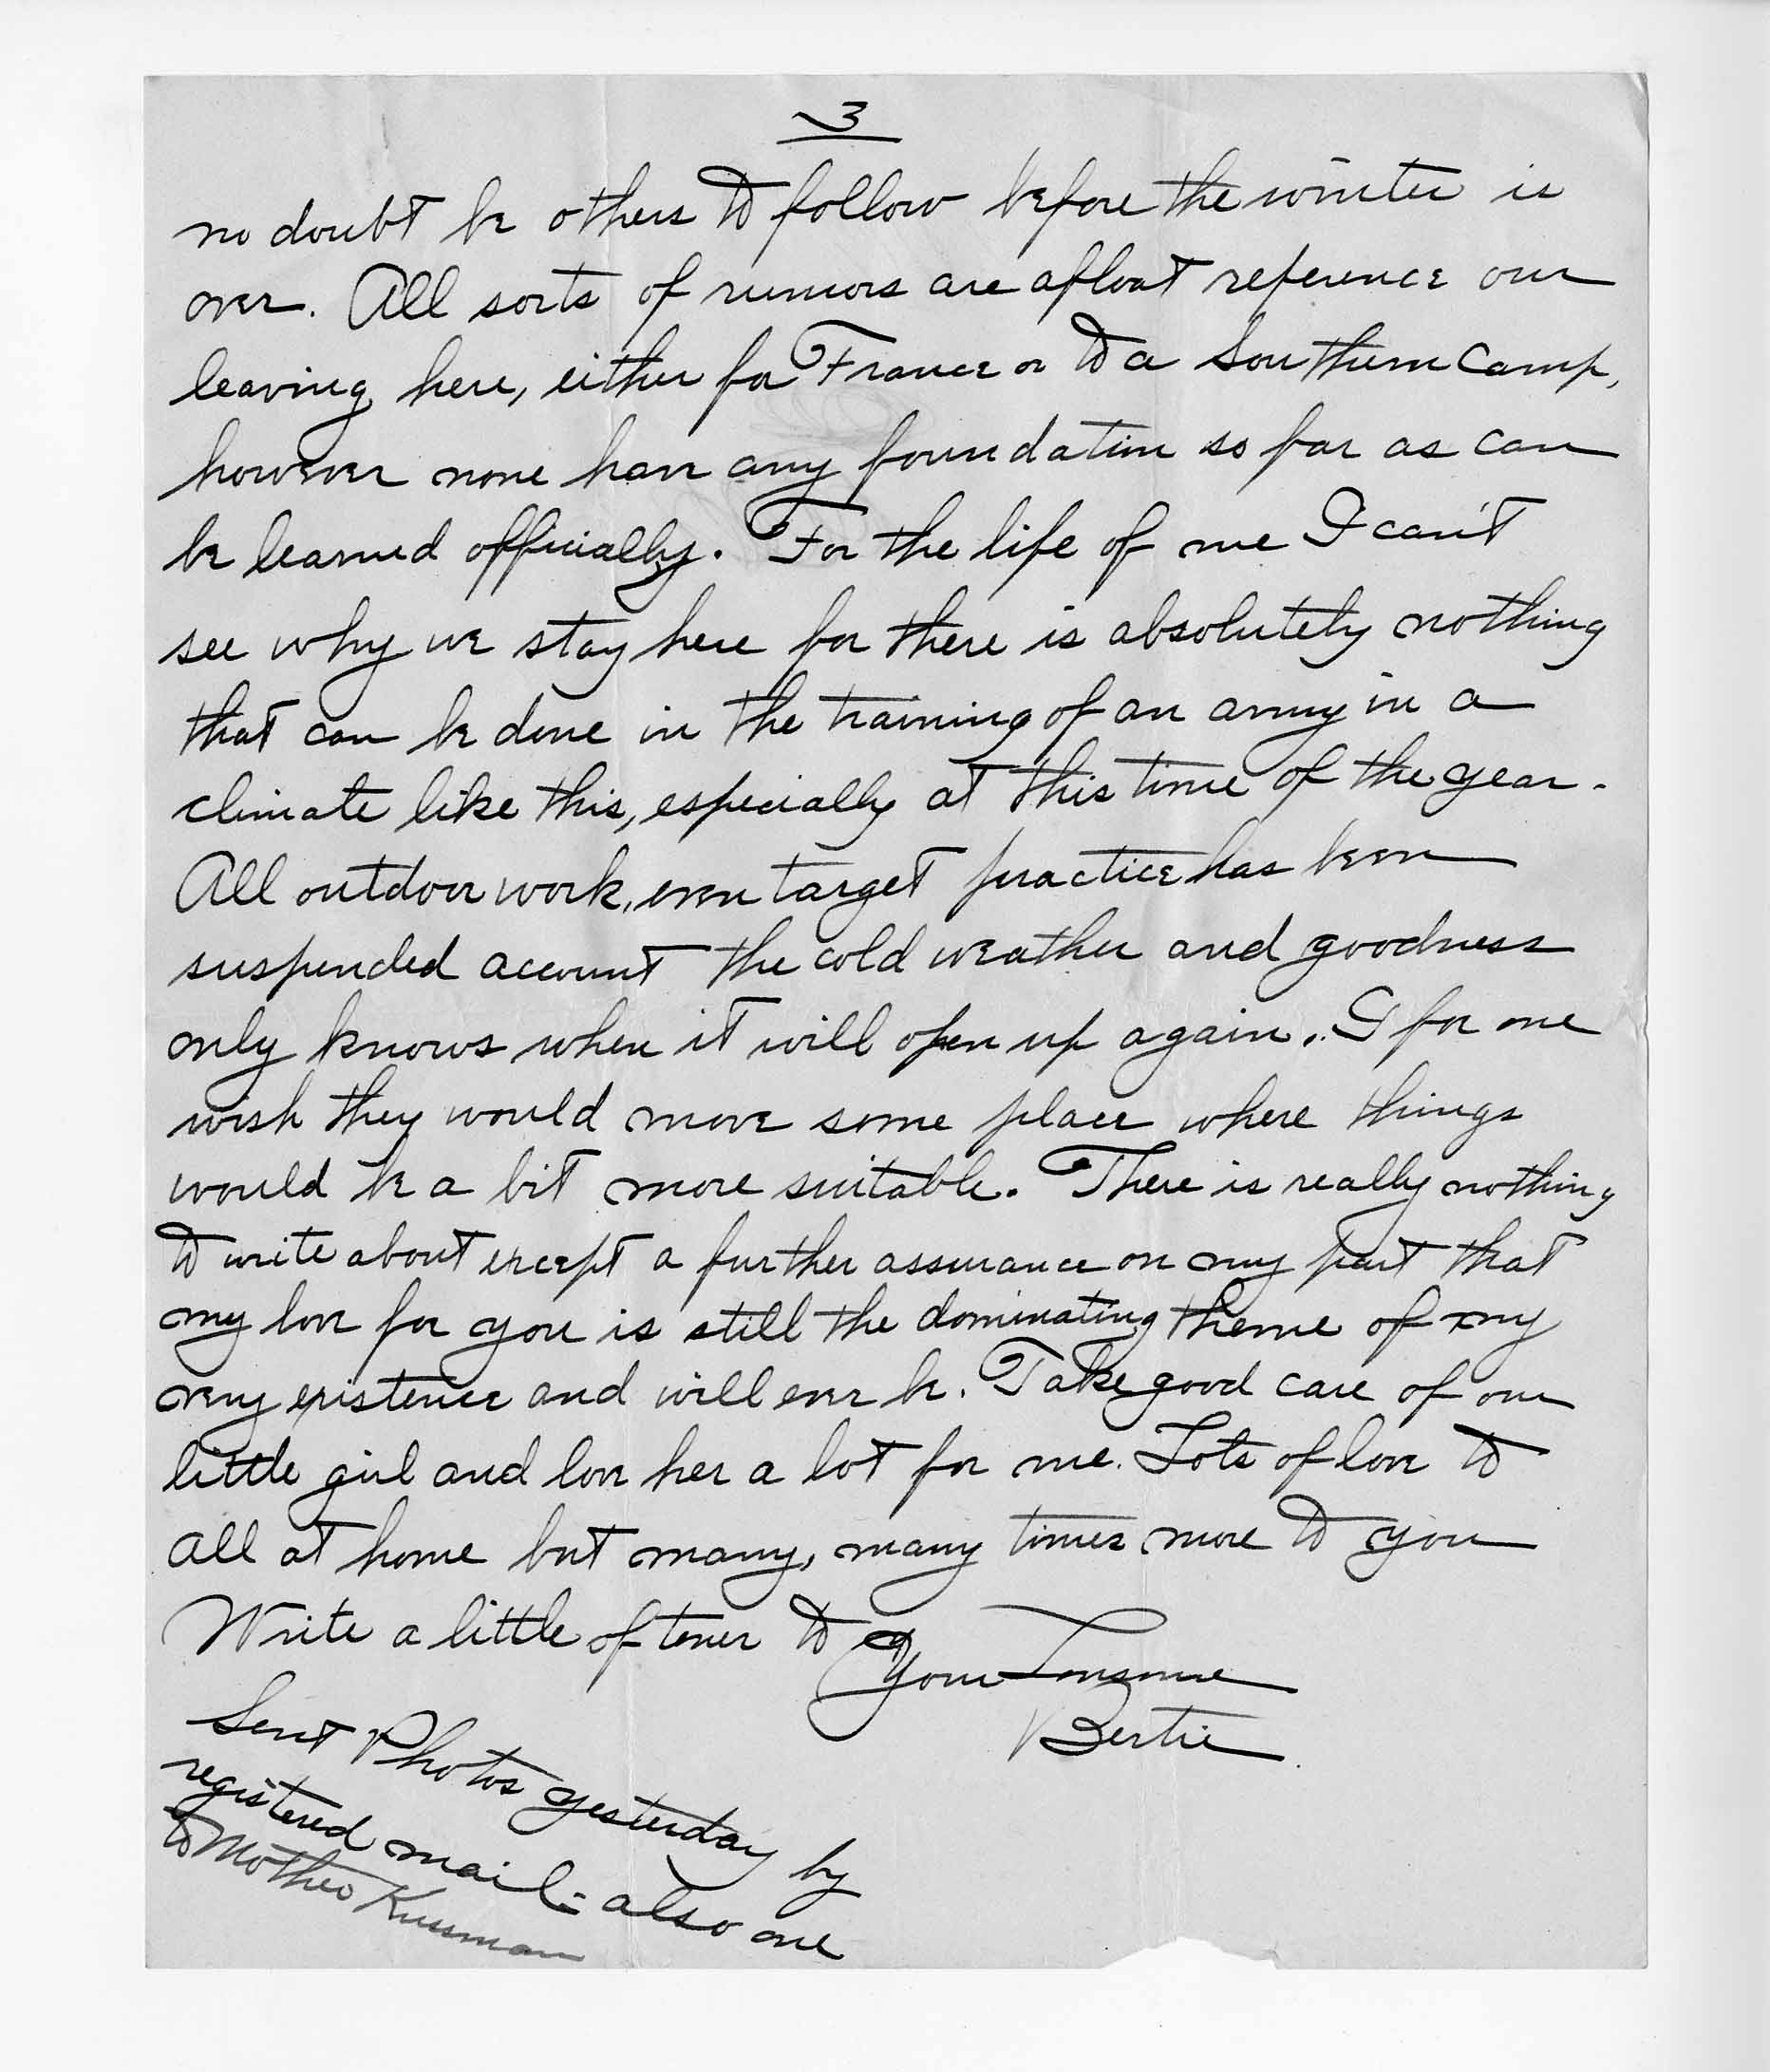 3
no doubt be others to follow before the winter is
over. All sorts of rumors are afloat reference our
leaving here, either for France or to a Southern Camp,
however none have any foundation so far as can
be learned officially. For the life of me I can't
see why we stay here for there is absolutely nothing
that can be done in the training of an army in a
climate like this, especially at this time of the year.
All outdoor work, even target practice has been
suspended account the cold weather and goodness
only knows when it will open up again. I for one
wish they would move some place where things
would be a bit more suitable. There is really nothing
to write about except a further assurance on my part that
my love for you is still the dominating theme of my
very existence and will ever be. Take good care of our
little girl and love her a lot for me. Lots of love to
all at home but many, many times more to you
Write a little oftener to
Your Lonesome
Bertie.
Sent Photos yesterday by
registered mail - also one
to Mother Kussman